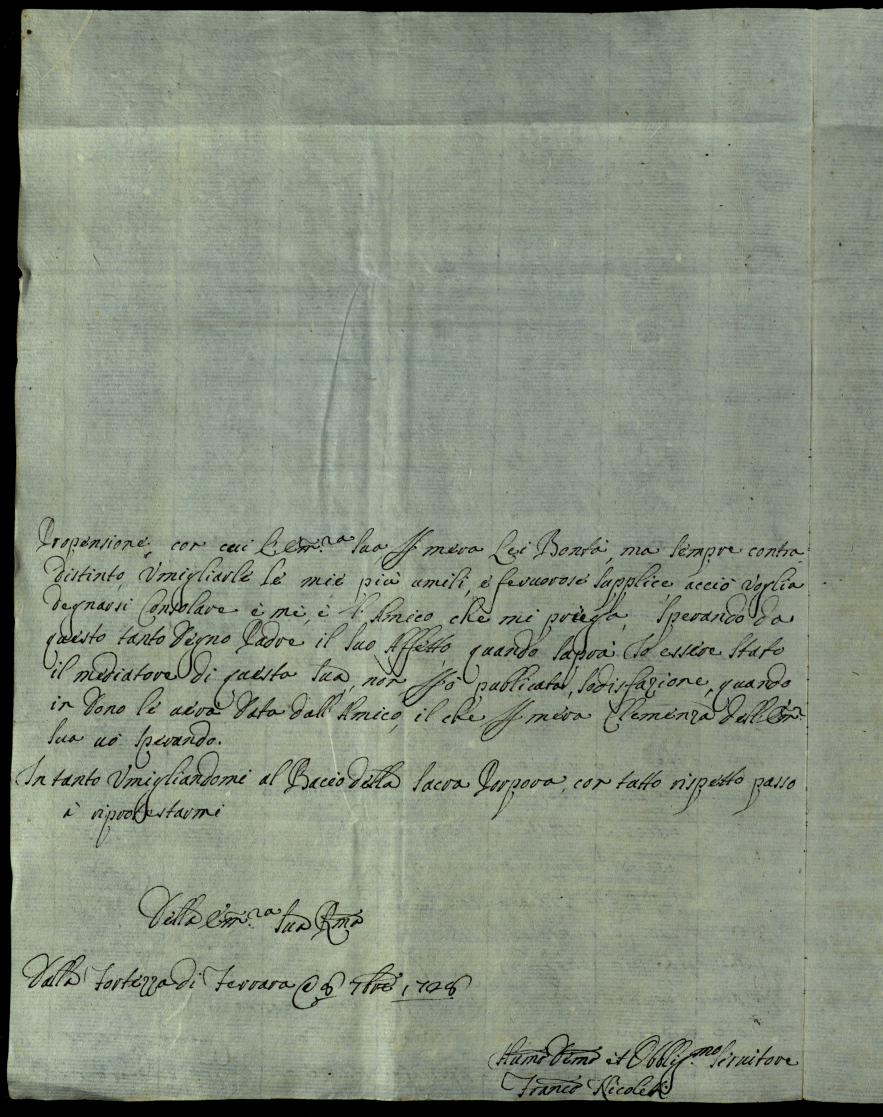 Propensione, con cui l'Em.za Sua, Mera Lei Bontà, ma sempre contra
distinto, Umigliarle le mie più umili, e feruorose supplice acciò Voglia
degnarsi Consolare è mi, è l'Amico che mi priega, sperando da
questo tanto degno Padre il suo Affetto quando saprà Io essere stato
il mediatore di questa sua, non publicata, sodisfazione, quando
in dono le uerà data dall'Amico, il che mera Clemenza dell'Em.
Sua uò sperando.
In tanto Umigliandomi al Baccio della Sacra Porpora, con tutto rispetto passo
à riprotestarmi
Della Em.za Sua Rma
Dalla Fortezza di Ferrara @ 8 7bre 1728
Humo Demo et Obblig.mo Seruitore
Franco Nicoleti